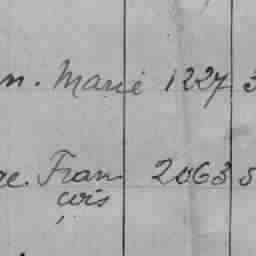 n. Marie 1227 3
re. Fran 2063 5
çois